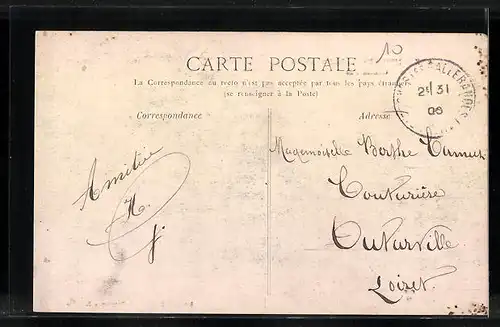 10
CARTE POSTALE
La Correspondance au recto n'est pas acceptée par tous les pays étran
(se renseigner à la Poste)
Correspondance
Adresse
21 31
Amitié
Mademoiselle Berthe
Couturière
Outarville
Loiret.